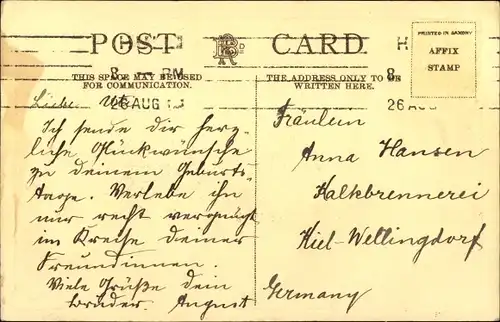 POST CARD
PRINTED IN SAXONY
AFFIX
STAMP
THIS SPACE MAY BE USED
FOR COMMUNICATION.
THE ADDRESS ONLY TO BE
WRITTEN HERE.
8 PM
26 AUG 13
8
26 AUG
Liebe
Ich sende dir herz-
liche Glückwünsche
zu deinem Geburts-
tage. Verlebe ihn
nur recht vergnügt
im Kreise deiner
Freundinnen.
Viele Grüße dein
Bruder. August
Fräulein
Anna Hansen
Kalkbrennerei
Kiel-Wellingdorf
Germany